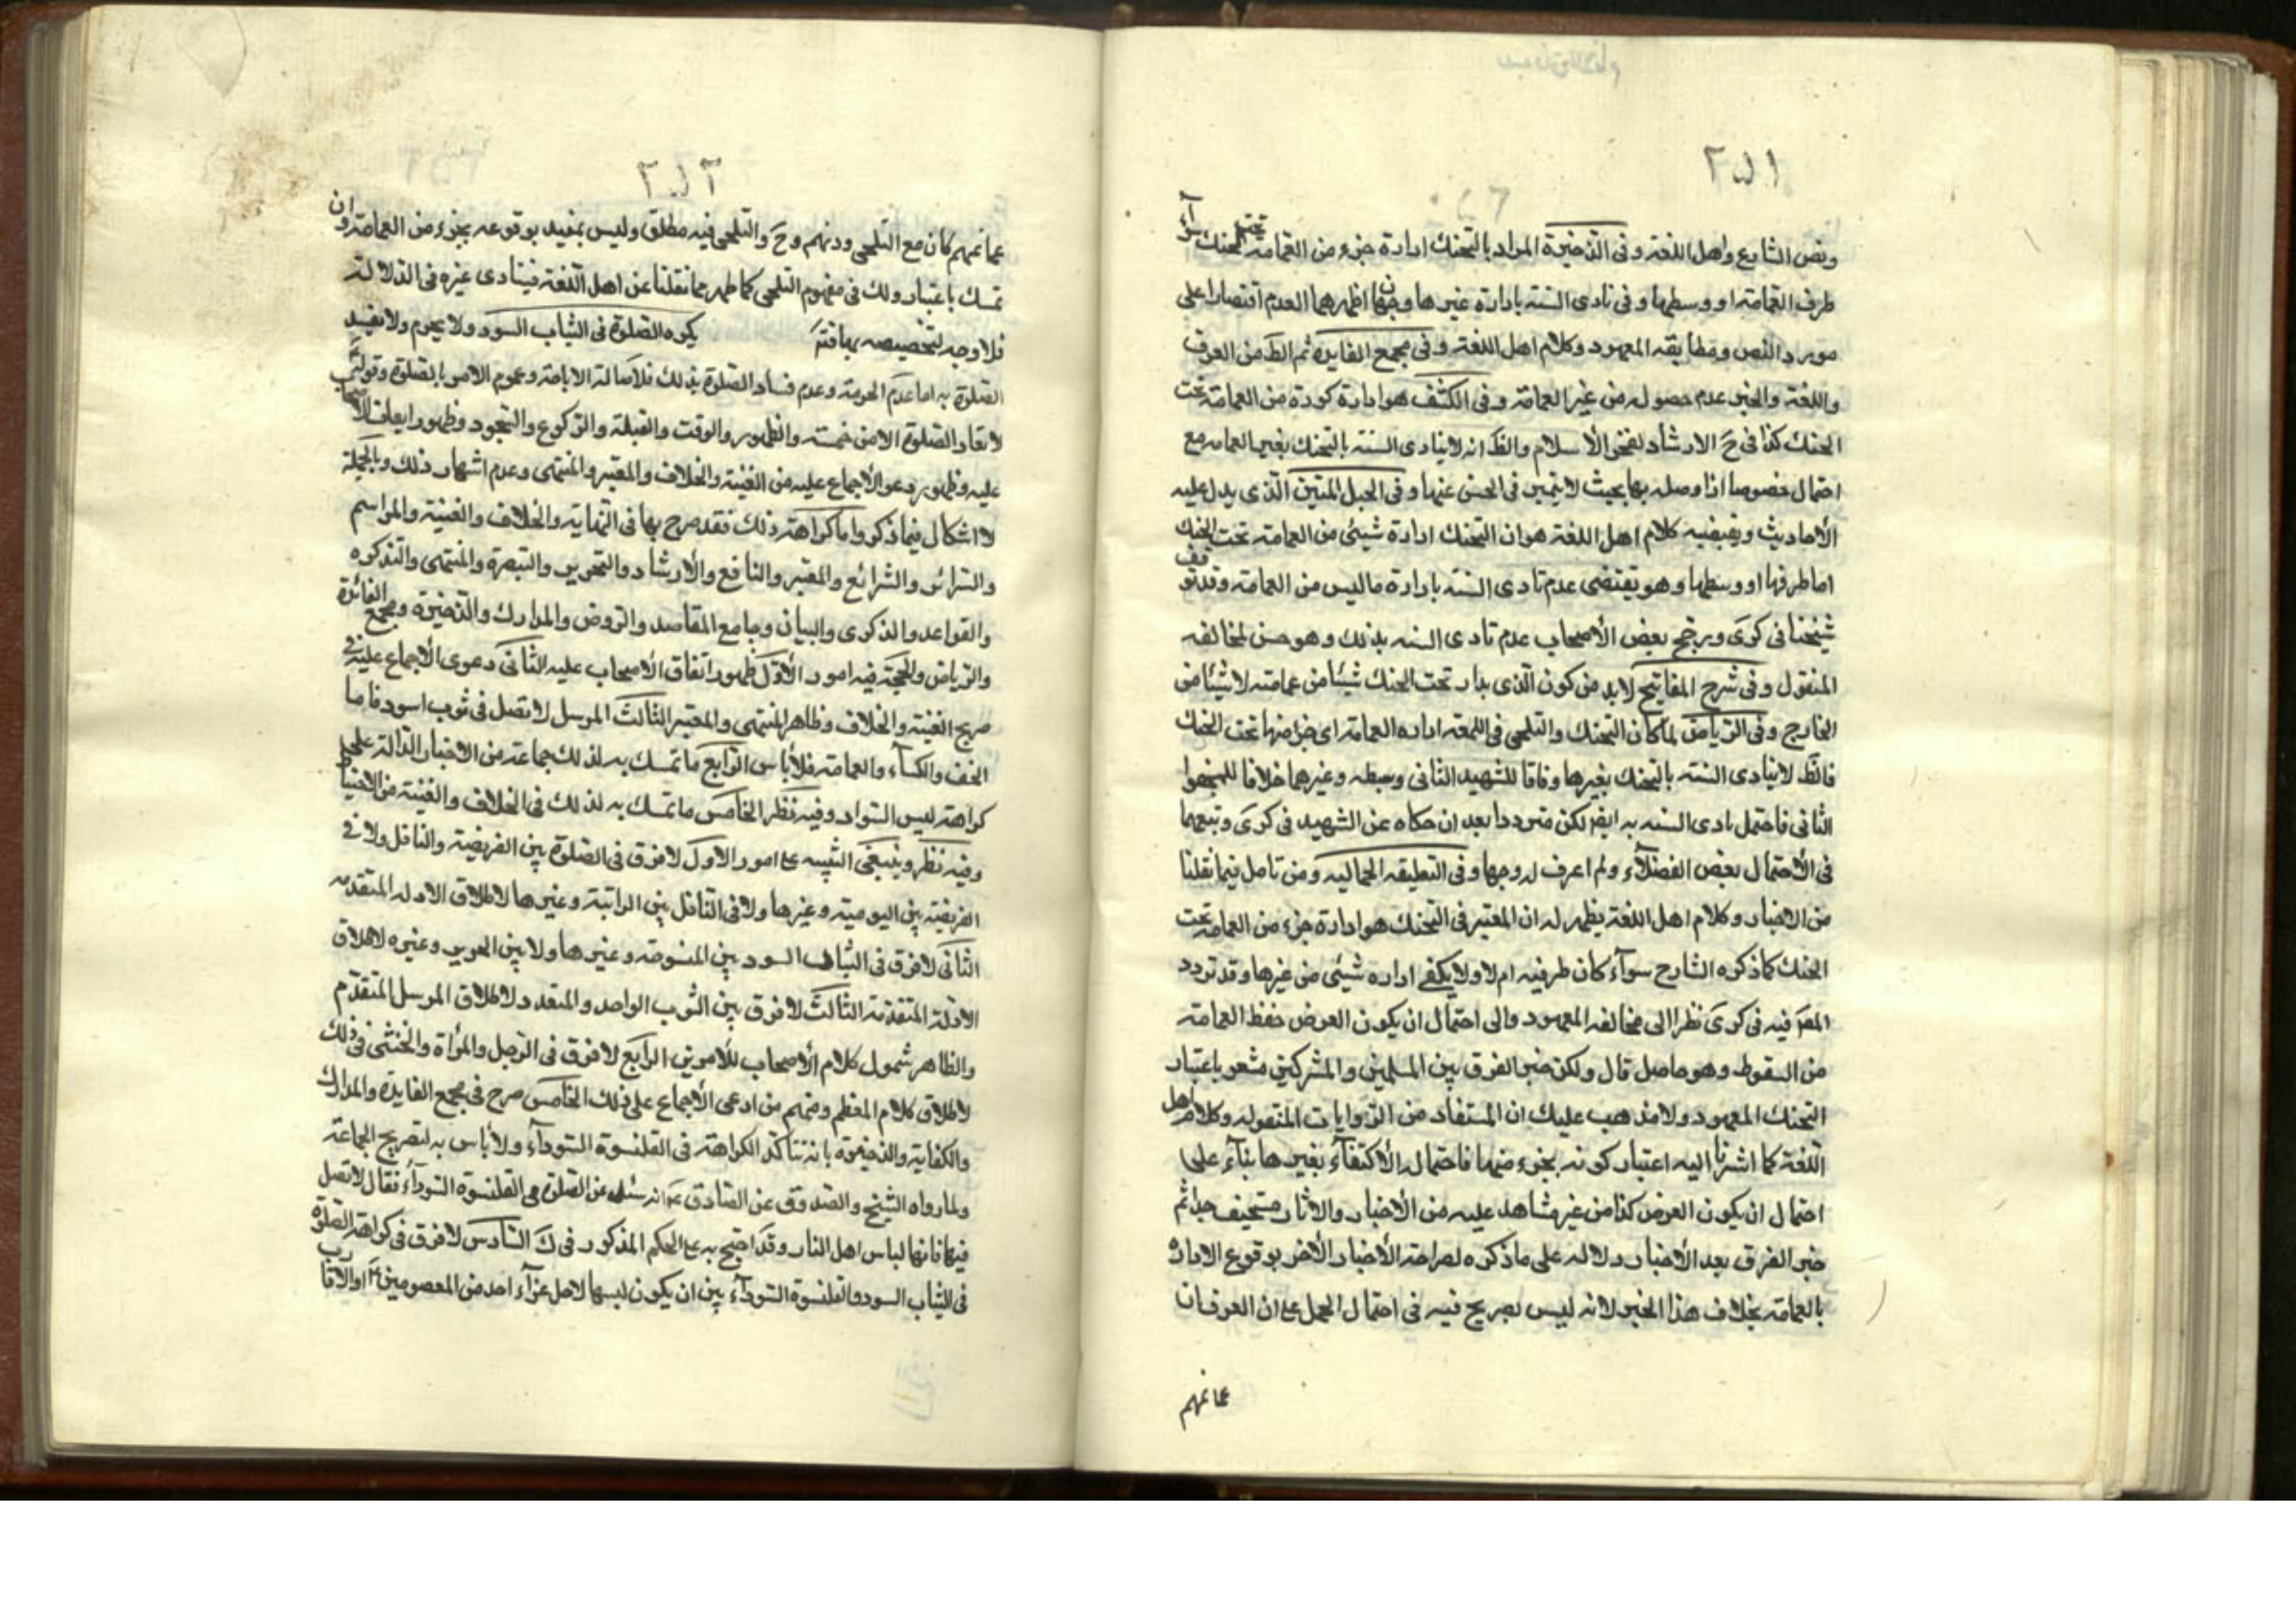 ونص الشارع واهل اللغة وفى الذخيرة المراد بالتحنك ادارة جزء من العمامة تحت الحنك سوآء
طرف العمامة او وسطها وفى تادى السنة بادارة غيرها وجهان اظهرهما العدم اقتصارا على
مورد النص ومطابقه المعهود وكلام اهل اللغة وفى مجمع الفايدة ثم الظ من العرف
واللغة والخبر عدم حصوله من غير العمامة وفى الكشف هو ادارة كورة من العمامة تحت
الحنك كذا فى ح الارشاد لفخر الاسلام والظ انه لا يتادى السنة بالتحنك بغير العمامه مع
احتمال خصوصا اذا وصله بها بحيث لا يتميز فى الحس عنها وفى الحبل المتين الذى يدل عليه
الأحاديث ويقتضيه كلام اهل اللغة هو ان التحنك ادارة شيئى من العمامة تحت الحنك
اما طرفها او وسطها وهو يقتضى عدم تادى السنه بادارة ما ليس من العمامة وقد توقف
شيخنا فى كرى ورجح بعض الأصحاب عدم تادى السنه بذلك وهو حسن لمخالفه
المنقول وفى شرح المفاتيح لابد من كون الذى يدار تحت الحنك شيئا من عمامته لا شيئا من
الخارج وفى الرياض لما كان التحنك والتلحى فى اللغه اداره العمامة اى جزء منها تحت الحنك
فالظ لا يتادى السنة بالتحنك بغيرها وفاقا للشهيد الثانى وسبطه وغيرهما خلافا
الثانى فاحتمل تادى السنه به ايضا لكن مترددا بعد ان حكاه عن الشهيد فى كرى وتبعهما
فى الأحتمال بعض الفضلآء ولم اعرف له وجها وفى التعليقه الجماليه ومن تامل فيما نقلنا
من الاخبار وكلام اهل اللغة يظهر له ان المعتبر فى التحنك هو ادارة جزء من العمامة تحت
الحنك كما ذكره الشارح سوآء كان طرفيه ام لا ولا يكفى اداره شيئى من غيرها وقد تردد
المصَ فيه فى كرى نظرا الى مخالفه المعهود والى احتمال ان يكون الغرض حفظ العمامة
من السقوط وهو حاصل قال ولكن خبر الفرق بين المسلمين والمشركين مشعر باعتبار
التحنك المعهود ولا يذهب عليك ان المستفاد من الروايات المنقوله وكلام اهل
اللغة كما اشرنا اليه اعتبار كونه بجزء منها فاحتمال الأكتفآء بغيرها بنآء على
احتمال ان يكون الغرض كذا من غير شاهد عليه من الأخبار والاثار سخيف جدا ثم
خبر الفرق بعد الأخبار دلاله على ما ذكره لصراحة الأخبار الأخر بوقوع الاداره
بالعمامة بخلاف هذا الخبر لانه ليس بصريح فيه فى احتمال الحمل على ان الفرق ان
عمائمهم
عمائمهم كان مع التلحى ودنهم وح والتلحى فيه مطلق وليس بمفيد بوقوعه بجزء من العمامة وان
تمسك باعتبار ذلك فى مفهوم التلحى كما ظهر مما نقلنا عن اهل اللغة فيتادى غيره فى الدلالة
فلا وجه لتخصيصه يكره الصلوة فى الثياب السود ولا يحرم ولا تفسد
الصلوة به اما عدم الحرمة وعدم فساد الصلوة بذلك فلاصالة الاباحة وعموم الامر بالصلوة وقوله
لا تعاد الصلوة الا من خمسة والطهور والوقت والقبلة والركوع والسجود وظهور الأصحاب
عليه وظهور دعوى الأجماع عليه من الغنية والخلاف والمعتبر والمنتهى وعدم اشتهار ذلك وبالجملة
لا اشكال فيما ذكر واما كراهة ذلك فقد صرح بها فى النهاية والخلاف والغنية والمراسم
والسرائر والشرائع والمعتبر والنافع والأرشاد والتحرير والتبصرة والمنتهى والتذكره
والقواعد والذكرى والبيان وجامع المقاصد والروض والمدارك والذخيرة ومجمع الفائدة
والرياض والحجة فيه امور الأول ظهور اتفاق الأصحاب عليه الثانى دعوى الأجماع عليه فى
صريح الغنية والخلاف وظاهر المنتهى والمعتبر الثالث المرسل لا تصل فى ثوب اسود فاما
الخف والكسآء والعمامة فلا باس الرابع ما تمسك به لذلك جماعة من الأخبار الدالة على
كراهة لبس السواد وفيه نظر الخامس ما تمسك به لذلك فى الخلاف والغنية من الاحتياط
وفيه نظر وينبغى التنبيه على امور الاول لا فرق فى الصلوة بين الفريضة والنافلة ولا فى
الفريضة بين اليومية وغيرها ولا فى النافلة بين الراتبة وغيرها لاطلاق الادله المتقدمه
الثانى لا فرق فى الثياب السود بين المنسوجة وغيرها ولا بين الحرير وغيره لاطلاق
الادلة المتقدمة الثالث لا فرق بين الثوب الواحد والمتعدد لاطلاق المرسل المتقدم
والظاهر شمول كلام الأصحاب للأمرين الرابع لا فرق فى الرجل والمرأة والخنثى فى ذلك
لاطلاق كلام المعظم ومنهم من ادعى الأجماع على ذلك الخامس صرح فى مجمع الفايدة والمدارك
والكفاية والذخيرة بانه تتاكد الكراهة فى القلنسوة السودآء ولا باس به لتصريح الجماعة
ولما رواه الشيخ والصدوق عن الصادق عَ انه سئل عن الصلوة فى القلنسوة السودآء فقال لا تصل
فيها فانها لباس اهل النار وقد احتج به على الحكم المذكور فى ك السادس لا فرق فى كراهة الصلوة
فى الثياب السود والقلنسوة السودآء بين ان يكون لبسها لاجل عزآء احد من المعصومين عَ او الأقارب